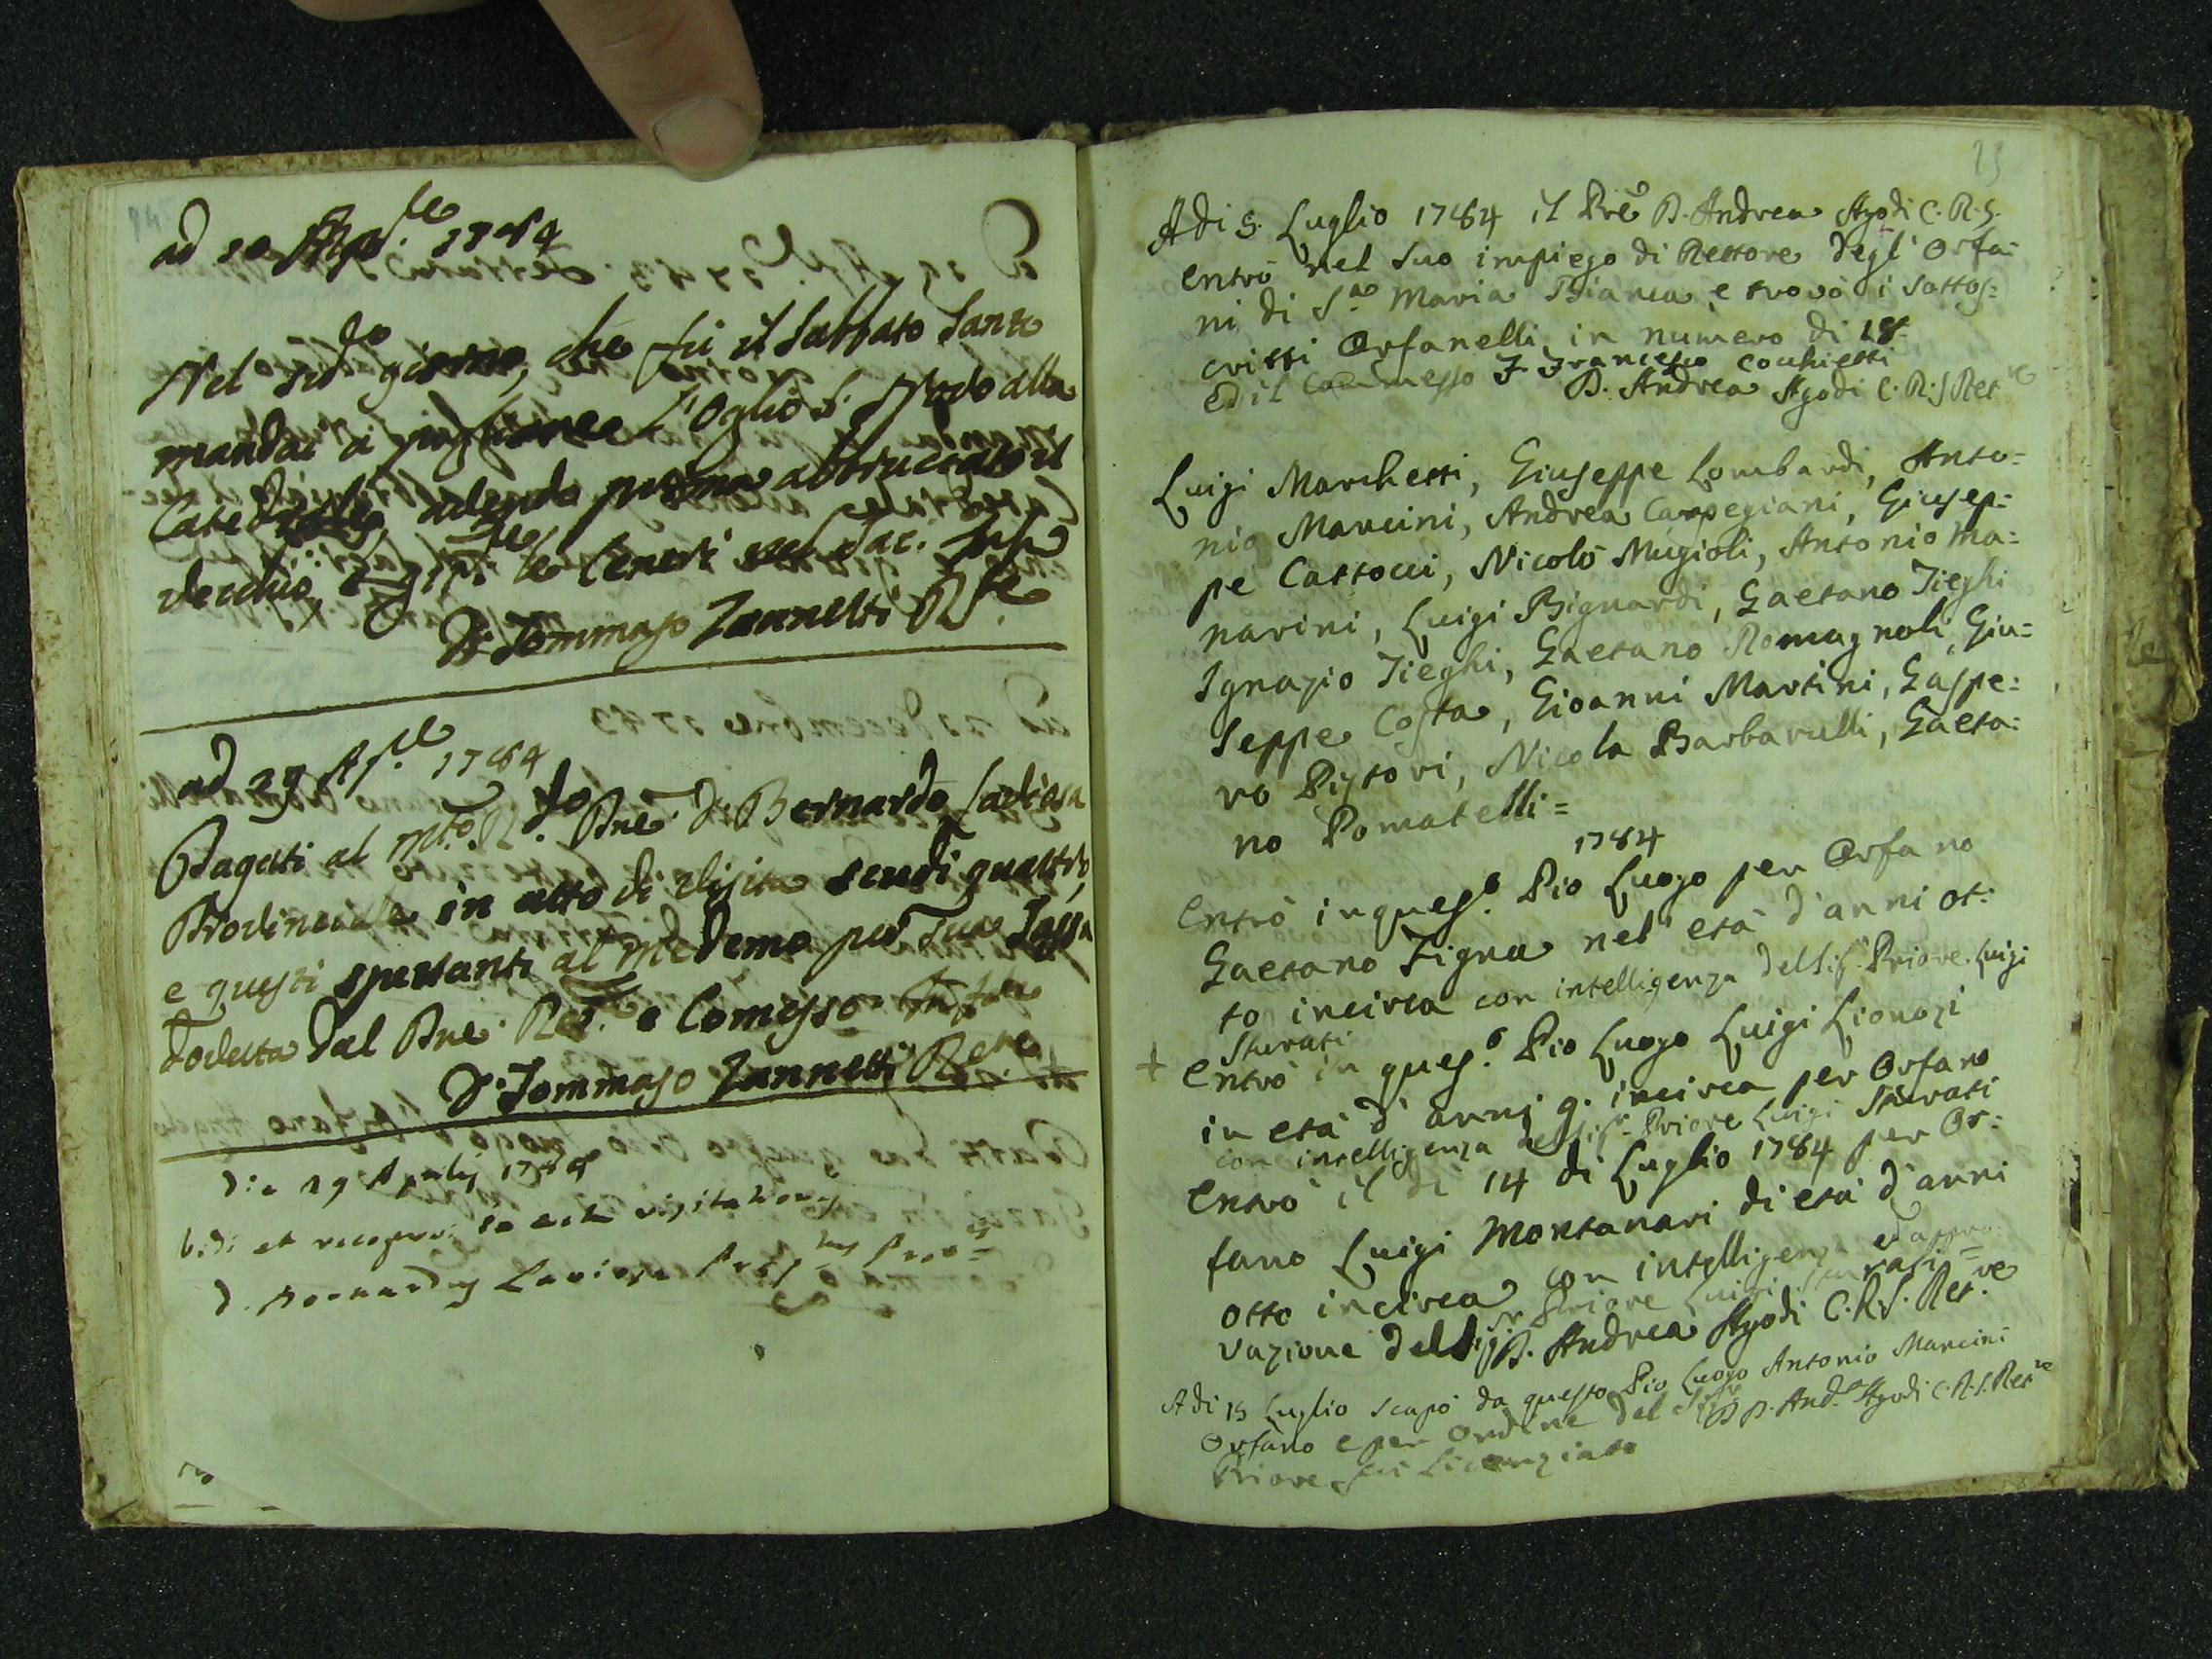 94
ad 10 Aple 1784
Nel sudo giorno, che fu il Sabbato Santo
mandai a pigliare l'Oglio S. nuovo alla
Catedrale, avendo prima abbrucciato il
vecchio, e le Ceneri nel Sac.
D. Tommaso Zannetti Rre
ad 29 Aple 1784
Pagati al mto. Rdo. Pne D. Bernardo Laviosa
Provinciale in atto di visita scudi quattro,
e questi spettanti al medemo per sua Tassa
dovuta dal Pne Retre e Comesso In fede
D. Tommaso Zannetti Retre
Die 29 Aprilis 1784
Vidi et recognovi in actu visitationis
D. Bernardus Laviosa Prepus Provlis
25
Adi 5. Luglio 1784 il Pre D. Andrea Agodi C. R. S.
entrò nel suo impiego di Rettore degl' Orfa=
ni di Sa Maria Bianca e trovò i sottos=
critti Orfanelli in numero di 18
Ed il Commesso F. Francesco Cochietti
D. Andrea Agodi C. R. S Retre
Luigi Marchetti, Giuseppe Lombardi, Anto=
nio Mancini, Andrea Carpegiani, Giusep=
pe Cattocci, Nicolò Mugioli, Antonio Ma=
narini, Luigi Bignardi, Gaetano Tieghi
Ignazio Tieghi, Gaetano Romagnoli, Giu=
seppe Costa, Gioanni Martini, Gaspe=
ro Pistori, Nicola Barbarulli, Gaeta=
no Pomatelli =
1784
Entrò in questo Pio Luogo per Orfano
Gaetano Tigna nel' età d'anni ot=
to incirca con intelligenza del Sigr Priore Luigi
Sturati
+ Entrò in questo Pio Luogo Luigi Lionozi
in età d' anni 9. incirca per Orfano
con intelligenza del Sigr Priore Luigi Sturati
Entrò il dì 14 di Luglio 1784 per Or=
fano Luigi Montanari di età d'anni
otto incirca con intelligenza ed appro=
vazione del Sigr Priore Luigi Sturati =
D. Andrea Agodi C. R. S. Retre
Adi 15 Luglio scapò da questo Pio Luogo Antonio Mancini
Orfano e per Ordine del Sigr
Priore fu Licenziato
D. Anda Agodi C. R. S. Retre